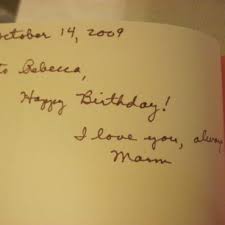 October 14, 2009
to Rebecca,
Happy Birthday!
I love you, always
Mom